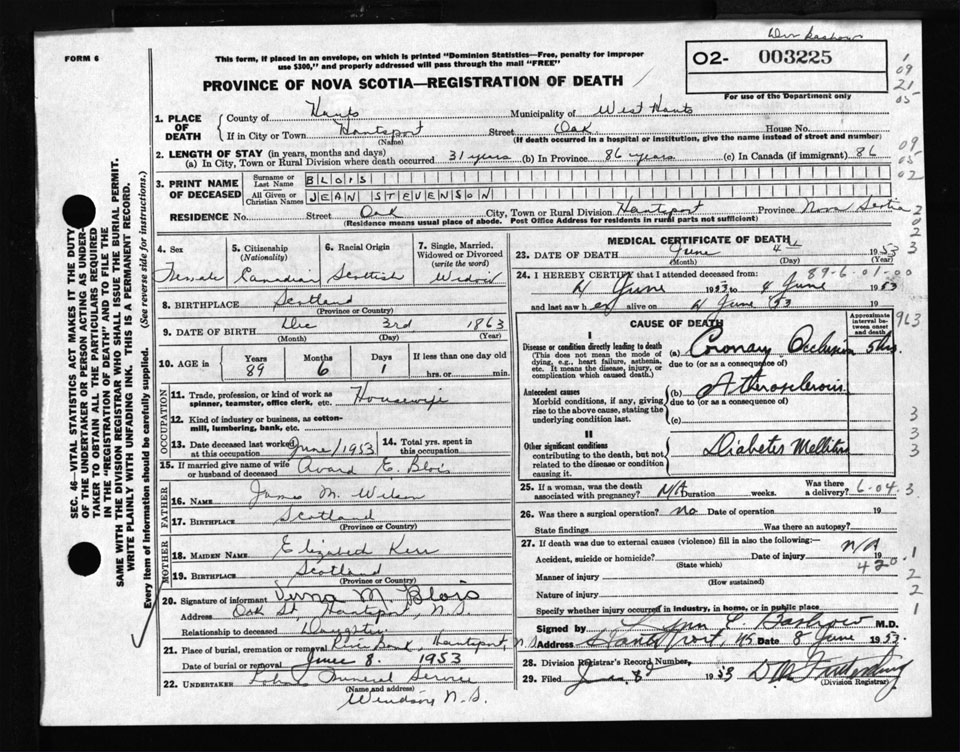 Dr. Bashow
FORM 6
This form, if placed in an envelope, on which is printed "Dominion Statistics—Free, penalty for improper
use $300," and properly addressed will pass through the mail "FREE"
02- 003225
For use of the Department only
PROVINCE OF NOVA SCOTIA—REGISTRATION OF DEATH
1. PLACE OF DEATH County of Hants Municipality of West Hants
If in City or Town Hantsport Street Oak House No.
(Name) (If death occurred in a hospital or institution, give the name instead of street and number)
2. LENGTH OF STAY (in years, months and days)
(a) In City, Town or Rural Division where death occurred 31 years (b) In Province 86 years (c) In Canada (if immigrant) 86
3. PRINT NAME OF DECEASED Surname or Last Name BLOIS
All Given or Christian Names JEAN STEVENSON
RESIDENCE No. Street Oak City, Town or Rural Division Hantsport Province Nova Scotia
(Residence means usual place of abode. Post Office Address for residents in rural parts not sufficient)
4. Sex Female
5. Citizenship (Nationality) Canadian
6. Racial Origin Scottish
7. Single, Married, Widowed or Divorced (write the word) Widow
8. BIRTHPLACE Scotland
(Province or Country)
9. DATE OF BIRTH Dec 3rd 1863
(Month) (Day) (Year)
10. AGE IN Years 89 Months 6 Days 1 If less than one day old hrs. or min.
OCCUPATION
11. Trade, profession, or kind of work as spinner, teamster, office clerk, etc. Housewife
12. Kind of industry or business, as cotton-mill, lumbering, bank, etc.
13. Date deceased last worked at this occupation June/1953
14. Total yrs. spent in this occupation
15. If married give name of wife or husband of deceased Avard E. Blois
FATHER
16. NAME James M. Wilson
17. BIRTHPLACE Scotland
(Province or Country)
MOTHER
18. MAIDEN NAME Elizabeth Kerr
19. BIRTHPLACE Scotland
(Province or Country)
20. Signature of informant Verna M. Blois
Address Oak St, Hantsport, N.S.
Relationship to deceased Daughter
21. Place of burial, cremation or removal Riverbank, Hantsport, N.S.
Date of burial or removal June 8. 1953
22. UNDERTAKER Funeral Service
(Name and address)
Windsor N.S.
MEDICAL CERTIFICATE OF DEATH
23. DATE OF DEATH June 4 1953
(Month) (Day) (Year)
89-6-01-00
24. I HEREBY CERTIFY that I attended deceased from:
4 June 1953 to 4 June 1953
and last saw her alive on 4 June 53 19
CAUSE OF DEATH
Approximate interval between onset and death
I
Disease or condition directly leading to death
(This does not mean the mode of dying, e.g., heart failure, asthenia, etc. It means the disease, injury, or complication which caused death.)
(a) Coronary Occlusion 5 hrs
due to (or as a consequence of)
Antecedent causes
Morbid conditions, if any, giving rise to the above cause, stating the underlying condition last.
(b) Atherosclerosis
due to (or as a consequence of)
(c)
II
Other significant conditions
contributing to the death, but not related to the disease or condition causing it.
Diabetes Mellitus
25. If a woman, was the death associated with pregnancy? N/A Duration weeks. Was there a delivery? 6-04.3
26. Was there a surgical operation? No Date of operation 19
State findings Was there an autopsy?
27. If death was due to external causes (violence) fill in also the following:— N/A
Accident, suicide or homicide? Date of injury 19
(State which) 420
Manner of injury
(How sustained)
Nature of injury
Specify whether injury occurred in industry, in home, or in public place
Signed by Lynn E. Bashow M.D.
Address Hantsport, NS Date 8 June 1953
28. Division Registrar's Record Number
29. Filed June 8 1953
(Division Registrar)
SEC. 46—VITAL STATISTICS ACT MAKES IT THE DUTY
OF THE UNDERTAKER OR PERSON ACTING AS UNDER-
TAKER TO OBTAIN ALL THE PARTICULARS REQUIRED
IN THE "REGISTRATION OF DEATH" AND TO FILE THE
SAME WITH THE DIVISION REGISTRAR WHO SHALL ISSUE THE BURIAL PERMIT.
WRITE PLAINLY WITH UNFADING INK. THIS IS A PERMANENT RECORD.
Every item of Information should be carefully supplied. (See reverse side for instructions.)
1
09
21
05
09
05
02
2
0
2
3
963
3
3
3
1
2
2
1